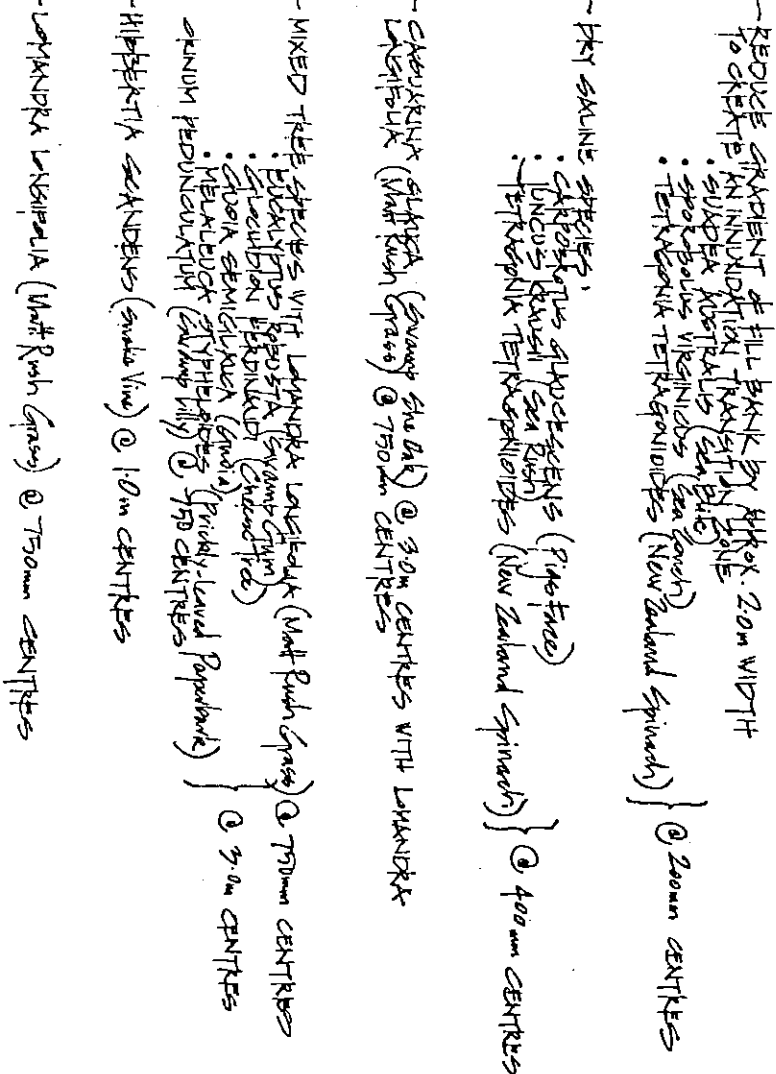 - REDUCE GRADIENT OF FILL BANK BY APPROX. 2.0m WIDTH
TO CREATE AN INNUNDATION TRANSITION ZONE
• SUADEA AUSTRALIS (Sea Blite)
• SPOROBOLUS VIRGINICUS (Sea Couch)
• TETRAGONIA TETRAGONIOIDES (New Zealand Spinach) } @ 200mm CENTRES
- DRY SALINE SPECIES.
• CARPOBROTUS GLAUCESCENS (Pigs Face)
• JUNCUS KRAUSII (Sea Rush)
• TETRAGONIA TETRAGONIOIDES (New Zealand Spinach) } @ 400mm CENTRES
- CASUARINA GLAUCA (Swamp She Oak) @ 3.0m CENTRES WITH LOMANDRA
LONGIFOLIA (Matt Rush Grass) @ 750mm CENTRES
- MIXED TREE SPECIES WITH LOMANDRA LONGIFOLIA (Matt Rush Grass) @ 750mm CENTRES
• EUCALYPTUS ROBUSTA (Swamp Gum)
• GLOCHIDION FERDINANDI (Cheese Tree)
• GUOIA SEMIGLAUCA (Guoia)
• MELALEUCA STYPHELIOIDES (Prickly-leaved Paperbark) } @ 3.0m CENTRES
CRINUM PEDUNCULATUM (Swamp Lily) @ 750 CENTRES
- HIBBERTIA SCANDENS (Snake Vine) @ 1.0m CENTRES
- LOMANDRA LONGIFOLIA (Matt Rush Grass) @ 750mm CENTRES